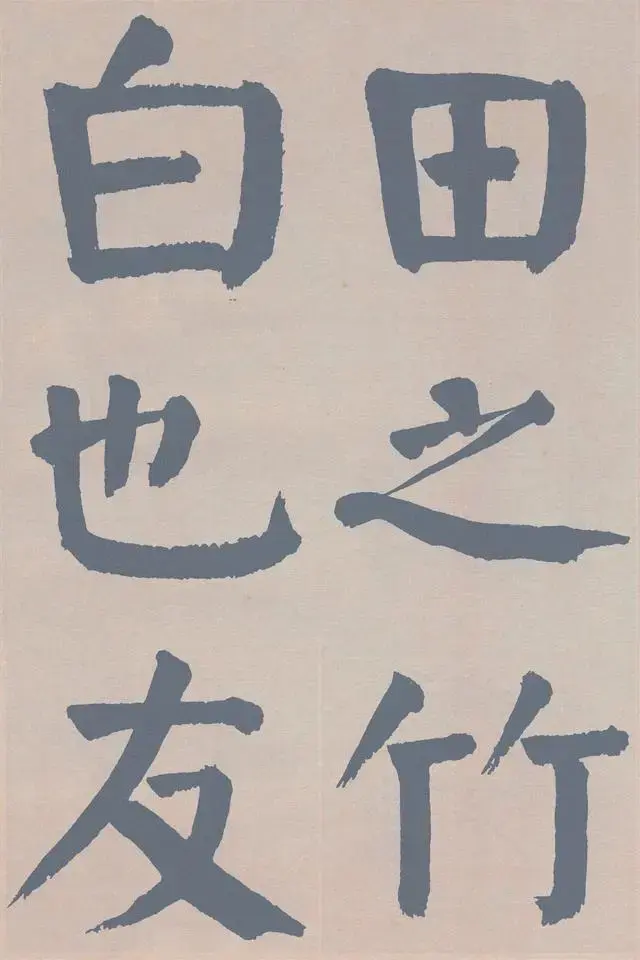 田之竹
白也友